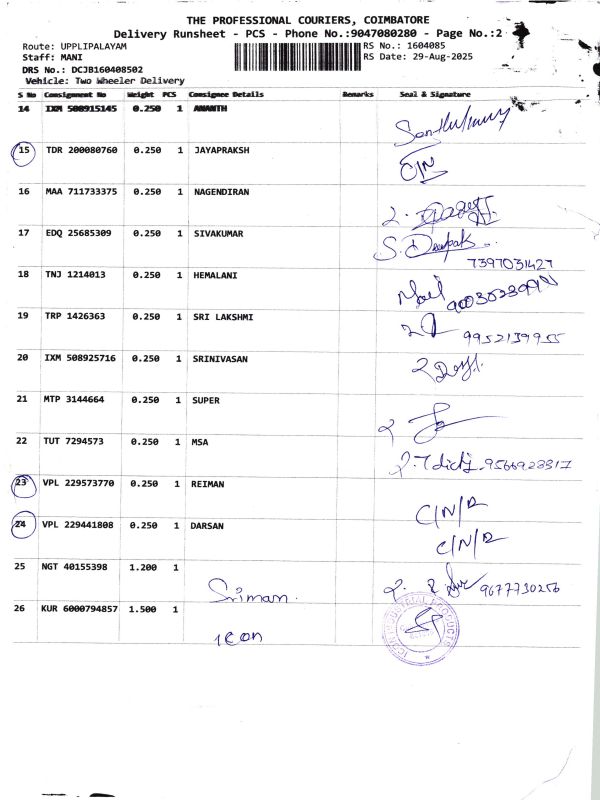 THE PROFESSIONAL COURIERS, COIMBATORE
Delivery Runsheet - PCS - Phone No.:9047080280 - Page No.:2
Route: UPPLIPALAYAM RS No.: 1604085
Staff: MANI RS Date: 29-Aug-2025
DRS No.: DCJB160408502
Vehicle: Two Wheeler Delivery
S No Consignment No Weight PCS Consignee Details Remarks Seal & Signature
14 IXM 508915145 0.250 1 ANANTH
15 TDR 200080760 0.250 1 JAYAPRAKSH
16 MAA 711733375 0.250 1 NAGENDIRAN
17 EDQ 25685309 0.250 1 SIVAKUMAR S. Deepak
7397031427
18 TNJ 1214013 0.250 1 HEMALANI
19 TRP 1426363 0.250 1 SRI LAKSHMI 9952139955
20 IXM 508925716 0.250 1 SRINIVASAN
21 MTP 3144664 0.250 1 SUPER
22 TUT 7294573 0.250 1 MSA
23 VPL 229573770 0.250 1 REIMAN C/N/R
24 VPL 229441808 0.250 1 DARSAN C/N/R
25 NGT 40155398 1.200 1 Sriman. 9677730256
26 KUR 6000794857 1.500 1 icon